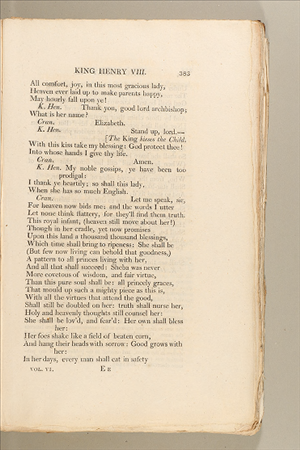 KING HENRY VIII. 383
All comfort, joy, in this most gracious lady,
Heaven ever laid up to make parents happy,
May hourly fall upon ye!
K. Hen. Thank you, good lord archbishop;
What is her name?
Cran. Elizabeth.
K. Hen. Stand up, lord.—
[The King kisses the Child.
With this kiss take my blessing: God protect thee!
Into whose hands I give thy life.
Cran. Amen.
K. Hen. My noble gossips, ye have been too
prodigal:
I thank ye heartily; so shall this lady,
When she has so much English.
Cran. Let me speak, sir,
For heaven now bids me: and the words I utter
Let none think flattery, for they'll find them truth.
This royal infant, (heaven still move about her!)
Though in her cradle, yet now promises
Upon this land a thousand thousand blessings,
Which time shall bring to ripeness: She shall be
(But few now living can behold that goodness,)
A pattern to all princes living with her,
And all that shall succeed: Sheba was never
More covetous of wisdom, and fair virtue,
Than this pure soul shall be: all princely graces,
That mould up such a mighty piece as this is,
With all the virtues that attend the good,
Shall still be doubled on her: truth shall nurse her,
Holy and heavenly thoughts still counsel her:
She shall be lov'd, and fear'd: Her own shall bless
her:
Her foes shake like a field of beaten corn,
And hang their heads with sorrow: Good grows with
her:
In her days, every man shall eat in safety
VOL. VI. E E